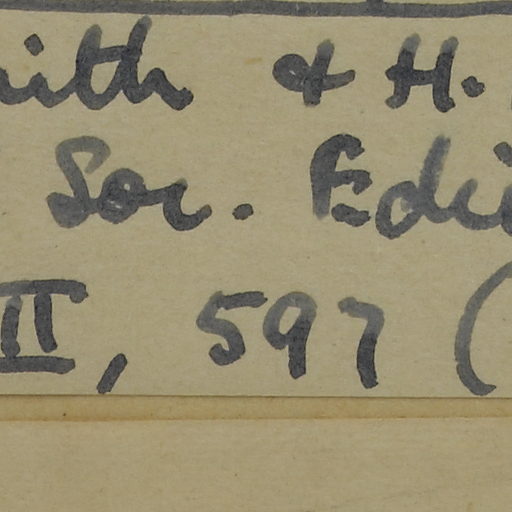 ith & H.
Soc. Edi
II, 597 (